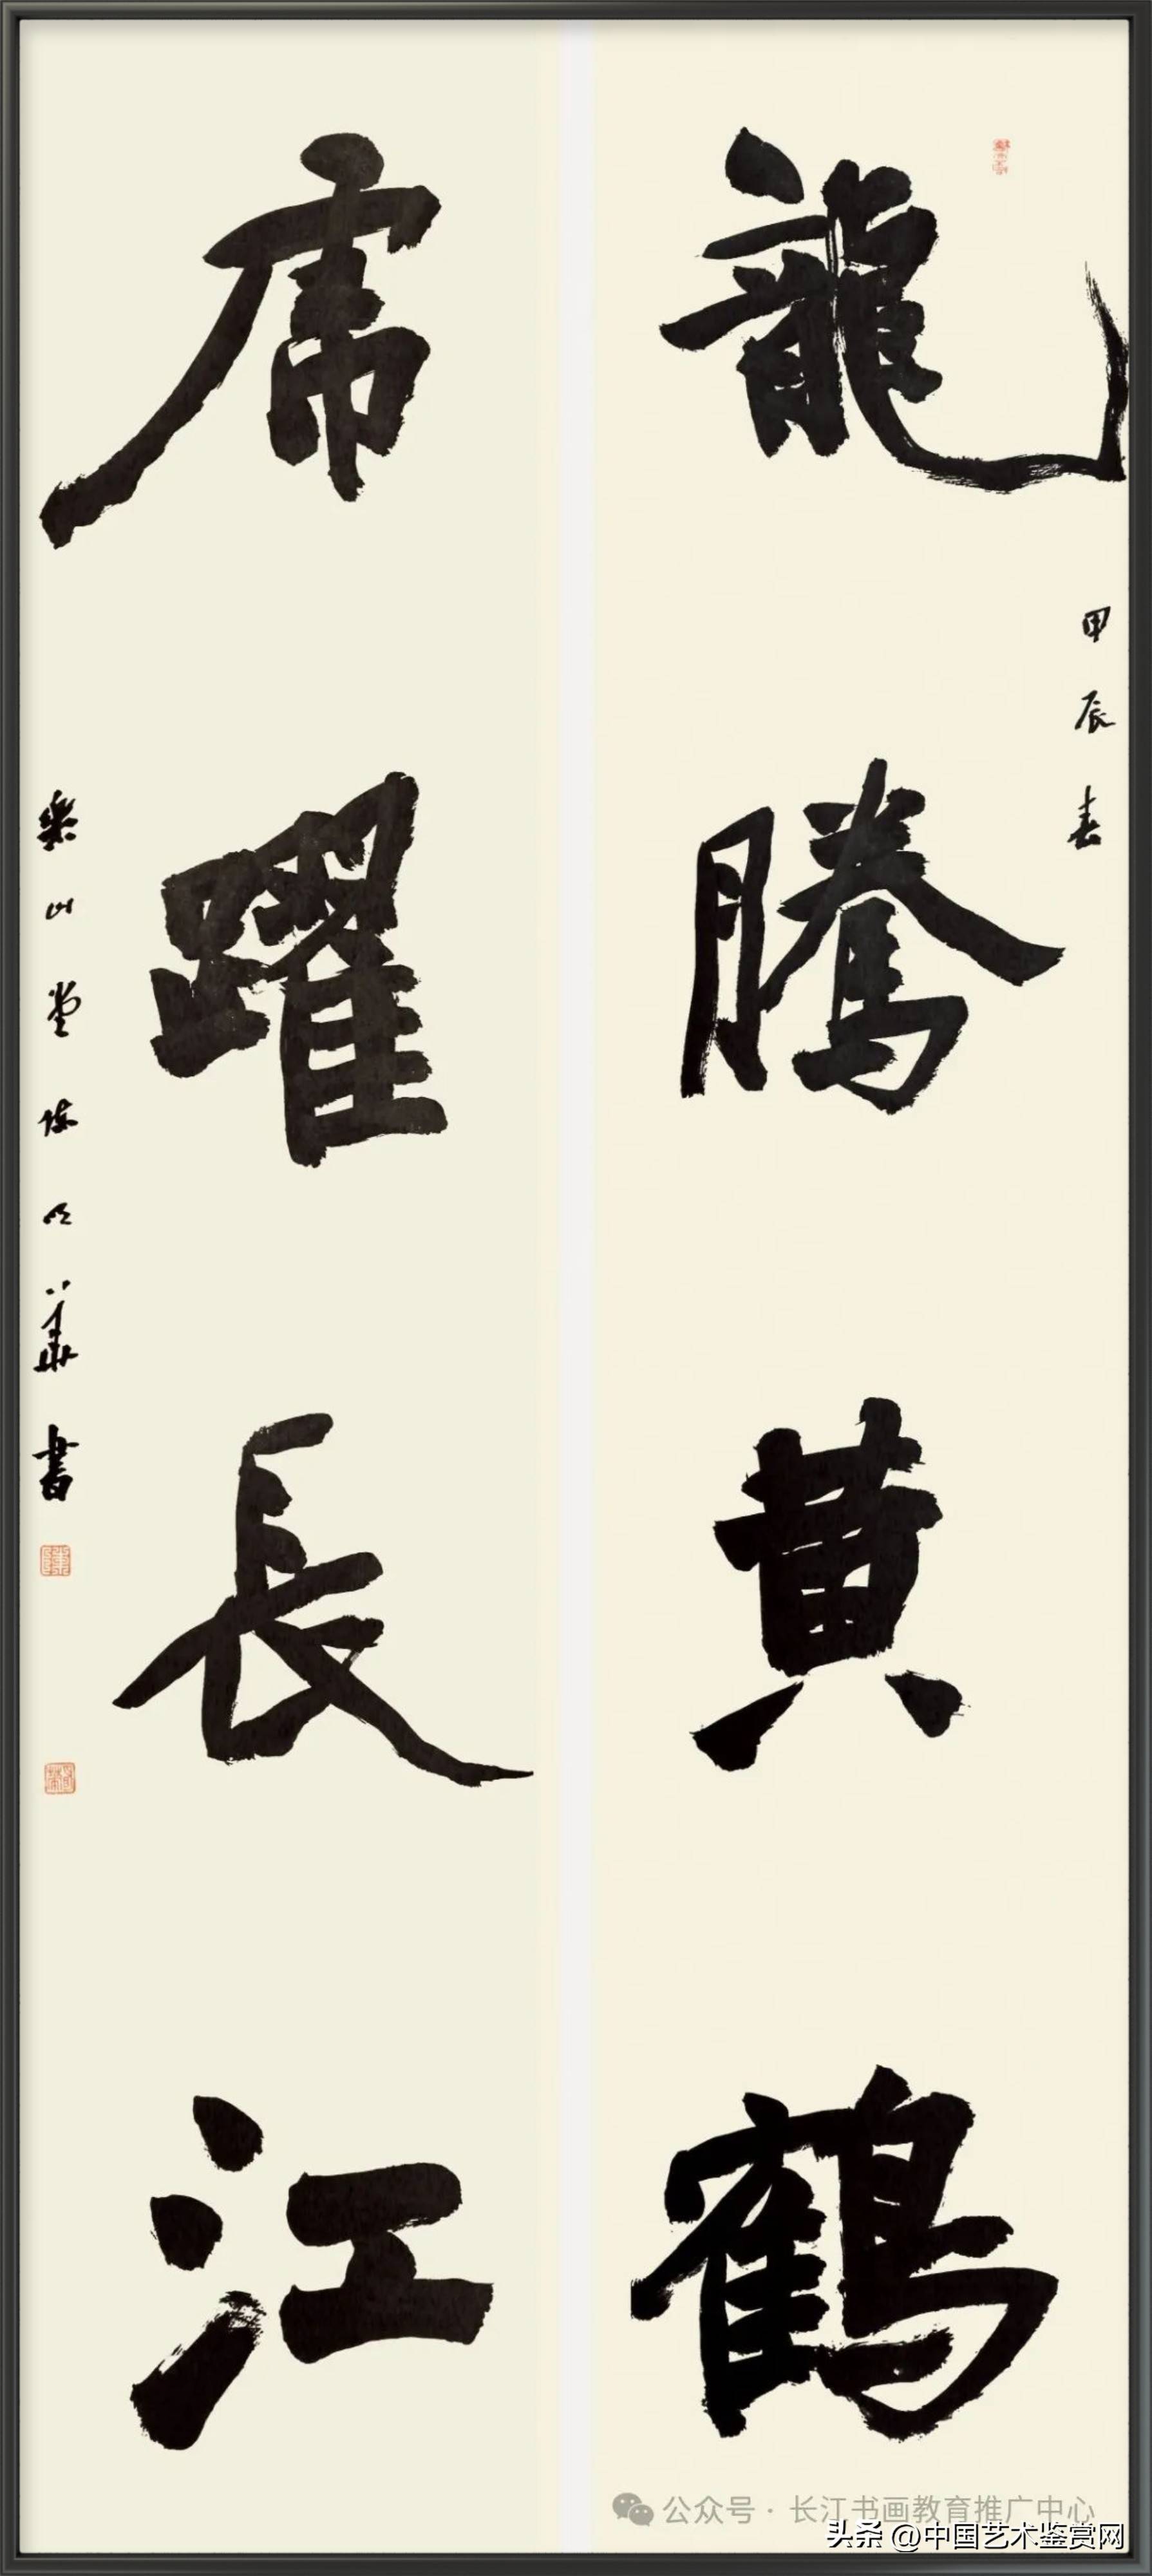 龍騰黄鶴
甲辰春
虎躍長江
樂山堂陈明華書
公众号 · 长江书画教育推广中心
头条 @中国艺术鉴赏网